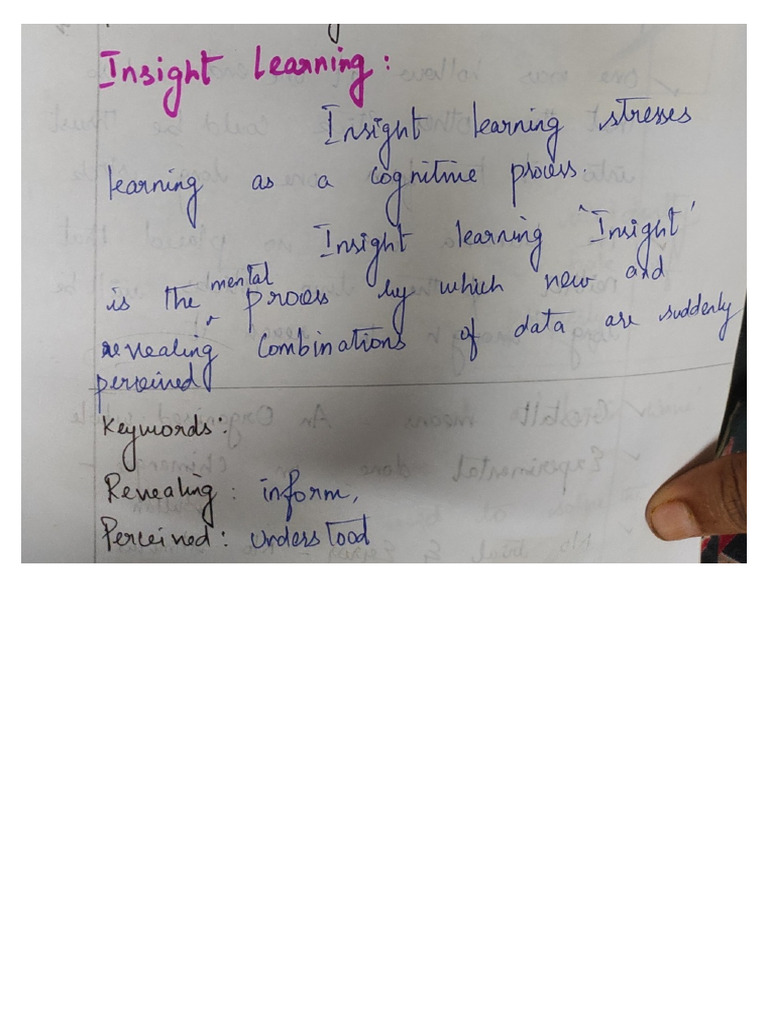 Insight learning :
Insight learning stresses
learning as a cognitive process.
Insight learning 'Insight'
is the mental process by which new and
revealing combinations of data are suddenly
perceived
Keywords:
Revealing : inform,
Perceived : understood